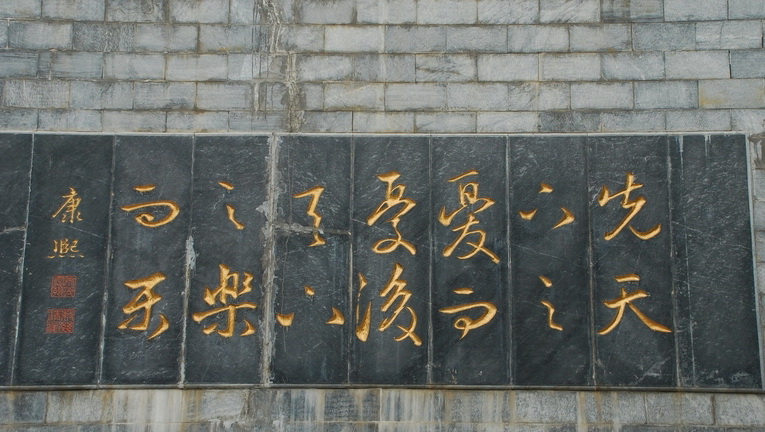 先天
下之
憂而
憂後
天下
之樂
而樂
康熙